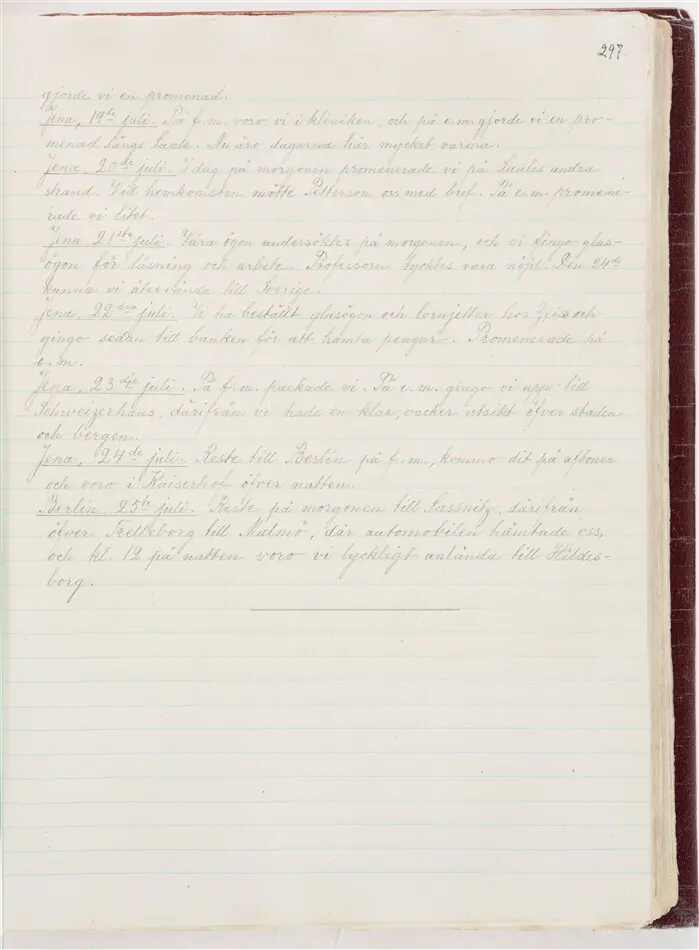 297.
gjorde vi en promenad.
Jena, 19de juli. På f.m. voro vi i kliniken, och på e.m. gjorde vi en pro-
menad längs Saale. Nu äro dagarna här mycket varma.
Jena 20de juli. Idag på morgonen promenerade vi på Saales andra
strand. Vid hemkomsten mötte Petterson oss med bref. På e.m. promene-
rade vi litet.
Jena, 21sta juli. Våra ögon undersöktes på morgonen, och vi fingo glas-
ögon för läsning och arbete. Professorn tycktes vara nöjd. Den 24de
kunna vi återvända till Sverige.
Jena, 22dra juli. Vi ha beställt glasögon och lornjetter hos Zeiss och
gingo sedan till banken för att hämta pengar. Promenerade på
e.m.
Jena, 23dje juli. På f.m. packade vi. På e.m. gingo vi upp till
Schweizerhaus, därifrån vi hade en klar, vacker utsikt öfver staden
och bergen.
Jena, 24de juli. Reste till Berlin på f.m., kommo dit på aftonen
och voro i Kaiserhof öfver natten.
Berlin 25te juli. Reste på morgonen till Sassnitz, därifrån
öfver Trelleborg till Malmö, där automobilen hämtade oss,
och kl. 12 på natten voro vi lyckligt anlända till Hildes-
borg.